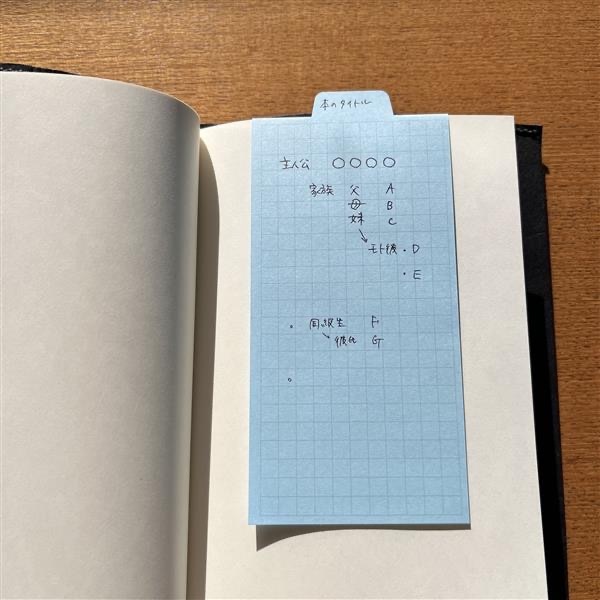 本のタイトル
主人公 ○○○○
家族 父 A
母 B
妹 C
↘ モト彼・D
・E
。同級生 F
↘ 彼氏 G
。